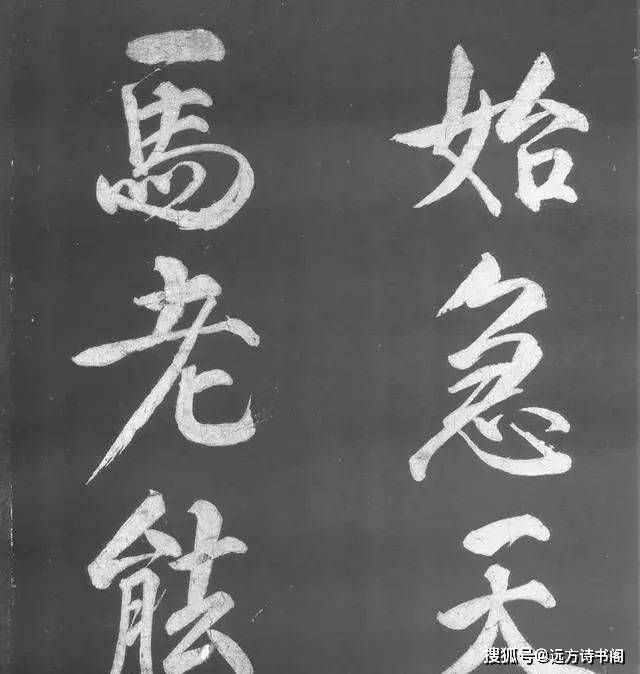 始急天
一馬老能
搜狐号@远方诗书阁